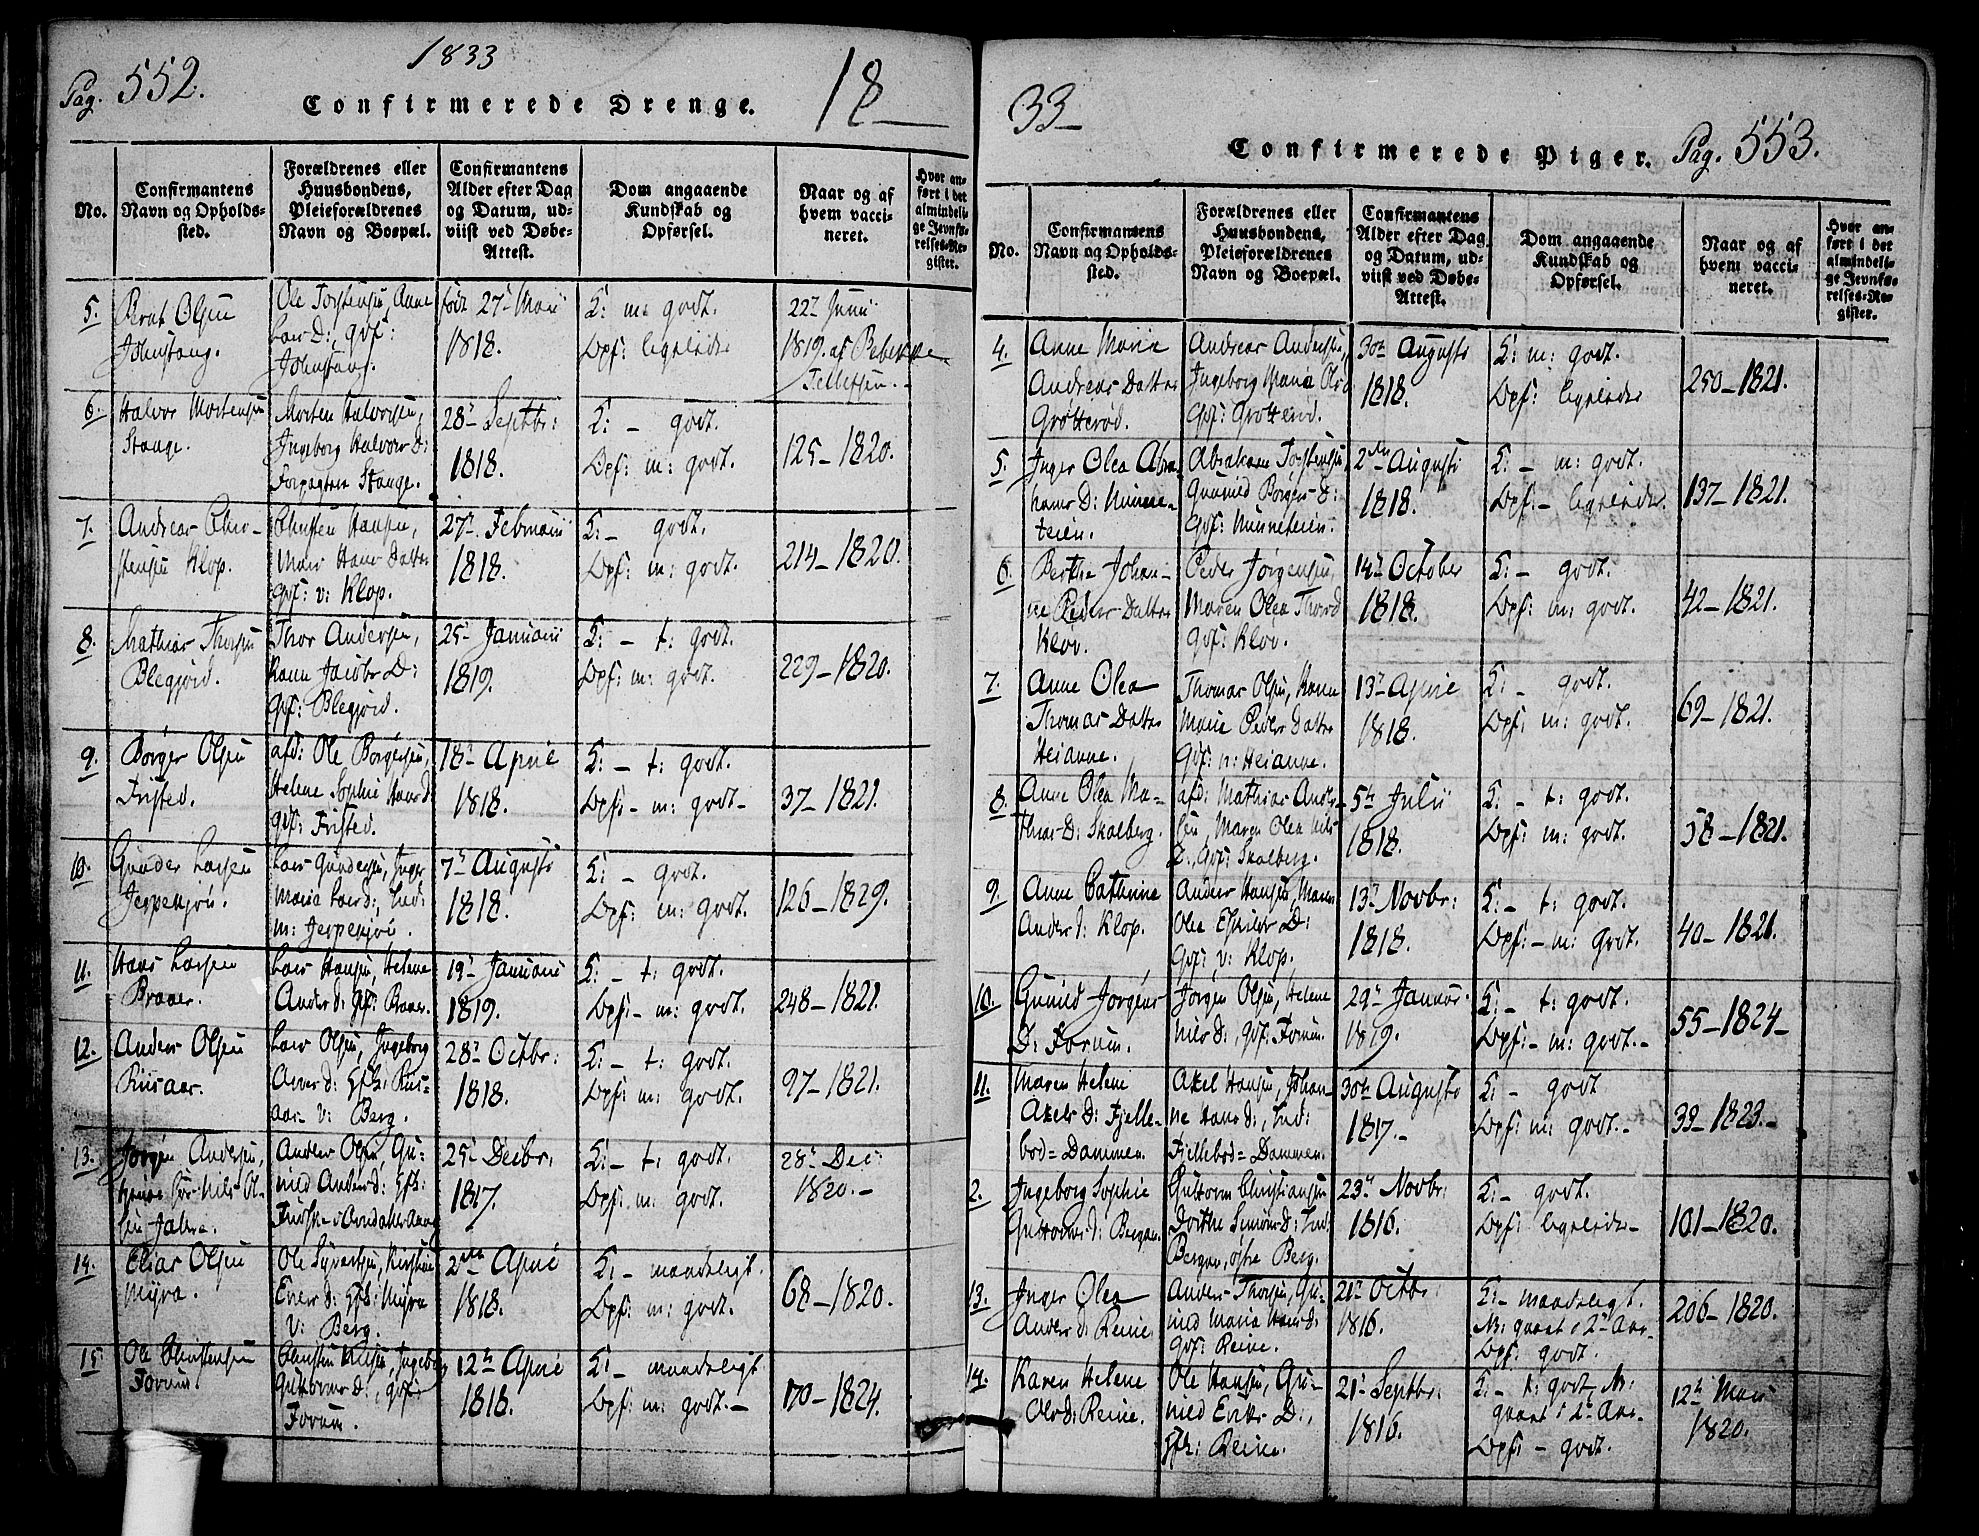 Pag. 552.
1833
18
Confirmerede Drenge.
No.
Confirmantens
Navn og Opholds-
sted.
Forældrenes eller
Huusbondens,
Pleieforældrenes
Navn og Boepæl.
Confirmantens
Alder efter Dag
og Datum, ud-
viist ved Døbe-
Attest.
Dom angaaende
Kundskab og
Opførsel.
Naar og af
hvem vacci-
neret.
Hvor an-
ført i det
almindeli-
ge Jevnfø-
relses-Re-
gister.
5.
Olsen
Johnstang.
Ole Torstensen, Anne
Lars D:, gdf:
Johnstang.
født 27de Marti
1818.
K: m: godt.
Opf: ligeledes
22de Junii
1819. af Rebekka
Tellefsen.
6.
Halvor Mortensen
Stange.
Morten Halvorsen,
Ingeborg Halvor D:
Forpagter Stange.
28de Septbr:
1818.
K: – godt.
Opf: m: godt.
125–1820.
7.
Andreas Chri-
stensen Klop.
Christen Hansen,
Mari Hans Datter
gdf: v: Klop.
27de Februarii
1818.
K: – godt.
Opf: m: godt.
214–1820.
8.
Mathias Thorsen
Blegjord.
Thor Andersen,
Karen Jacobs D:
Gdf: Blegjord.
25de Januarii
1819.
K: – t: godt.
Opf: m: godt.
229–1820.
9.
Børger Olsen
Fristed.
afd: Ole Børgersen,
Helene Sophie Hans D
gdf: Fristed.
18de April
1818.
K: – t: godt.
Opf: – m: godt–
37–1821.
10.
Gunder Larsen
Jerpekjøn.
Lars Gundersen, Inger
Maria Lars D:, Ind:
m: Jerpekjøn.
7de Augusti
1818.
K: – godt.
Opf: m: godt.
126–1829.
11.
Hans Larsen
Braaer.
Lars Hansen, Helene
Anders d: Gf: Braaer.
19de Januarii
1819.
K: – t: godt.
Opf: – m: godt.
248–1821.
12.
Anders Olsen
Riisaar.
Lars Olsen, Ingeborg
d: Gfh: Riis-
aar v: Berg.
28de Octbr:
1818.
K: – t: godt.
Opf: m: godt.
97–1821.
13.
Jørgen Andersen,
hos Nils Ol-
sen
Anders Olsen, Gu-
nild Anders d: Gfh:
25de Decbr.
1817.
K: – t: godt.
Opf: m: godt.
28de Dec:
1820.–
14.
Elias Olsen
Myra.
Ole Syvertsen, Kirstine
Evers d: Gfh: Myra
v: Berg.
2den April
1818.
K: – maadeligt.
Opf: m: godt.
68–1820.
15.
Ole Christensen
Forum.
Christen Nilsen, Ingeborg
Guttorms D:, gdf:
Forum.
12te April
1818.
K: – maadeligt
Opf: m: godt.–
170–1824.
33–
Confirmerede Piger.
Pag. 553.
No.
Confirmantens
Navn og Opholds-
sted.
Forældrenes eller
Huusbondens,
Pleieforældrenes
Navn og Boepæl.
Confirmantens
Alder efter Dag
og Datum, ud-
viist ved Døbe-
Attest.
Dom angaaende
Kundskab og
Opførsel.
Naar og af
hvem vacci-
neret.
Hvor an-
ført i det
almindeli-
ge Jevnfø-
relses-Re-
gister.
4.
Anne Marie
Andreas Datter
Grøtterød.
Andreas Andersen,
Ingeborg Maria Ols D
Gdf: Grøtterød.
30te Augusti
1818.
K: m: godt.
Opf: ligeledes
250–1821.
5.
Inger Olea Abra-
hams D: Minne-
teien.
Abraham Torstensen,
Gunnild Borgers D:
Gdf: Minneteien.
2den Augusti
1818.
K: – m: godt.
Opf: – ligeledes.
137–1821.
6.
Berthe Johan-
ne Peders Datter
Klov.
Peder Jørgensen,
Maren Olea Thors D
Gdf: Klov.
14de October
1818.
K: – godt.
Opf: m: godt.
42–1821.
7.
Anne Olea
Thomas Datter
Heianne.
Thomas Olsen, Karen
Marie Peders Datter
Gdf: n: Heianne.
13de April
1818.
K: – godt.
Opf: m: godt.
69–1821.
8.
Anne Olea Ma-
thias D: Skalberg.
afd: Mathias Ander-
sen, Maren Olea Nils
D., Gdf: Skalberg.
5te Julii
1818.
K: – t: godt.
Opf: m: godt.
58–1821.
9.
Anne Cathrine
Anders d: Klop.
Anders Hansen, Maren
Olea Eskilds D:
Gdf: v: Klop.
13de Novbr:
1818.
K: – t: godt.
Opf: – m: godt.
40–1821.
10.
Gunild Jørgens
D: Forum.
Jørgen Olsen, Helene
Nils d:, Gdf: Forum.
29de Januar
1819.
K: – t: godt.
Opf: – m: godt.–
55–1824–
11.
Maren Helene
Axels d: Fjelle-
bod=Dammen.
Axel Hansen, Johan-
ne Hans d:, Ind:
Fjellebod=Dammen.
30te Augusto
1817.–
K: – godt
Opf: m: godt.–
39–1823.–
2.
Ingeborg Sophie
Guttorms d: Bergan.
Guttorm Christiansen
Dorthe Simons d: Ind:
Bergan, østre Berg.
23de Novbr:
1816.
K: – godt.
Opf: ligeledes–
101–1820.
13.
Inger Olea
Anders d: Reine.
Anders Thorsen, Gu-
nild Maria Hans D:
Gdf: Reine.
21de Octbr:
1816.
K: – maadeligt.
N: gaaet i 2de Aar–
Opf: godt.
206–1820.
14.
Karen Helene
Ols D: Reine.
Ole Hansen, Gu-
nild Eriks D:,
Gfh: Reine.
21de Septbr:
1816.
K: – t: godt, N:
gaaet i 2de Aar–
Opf: – godt.
12te Marti
1820.